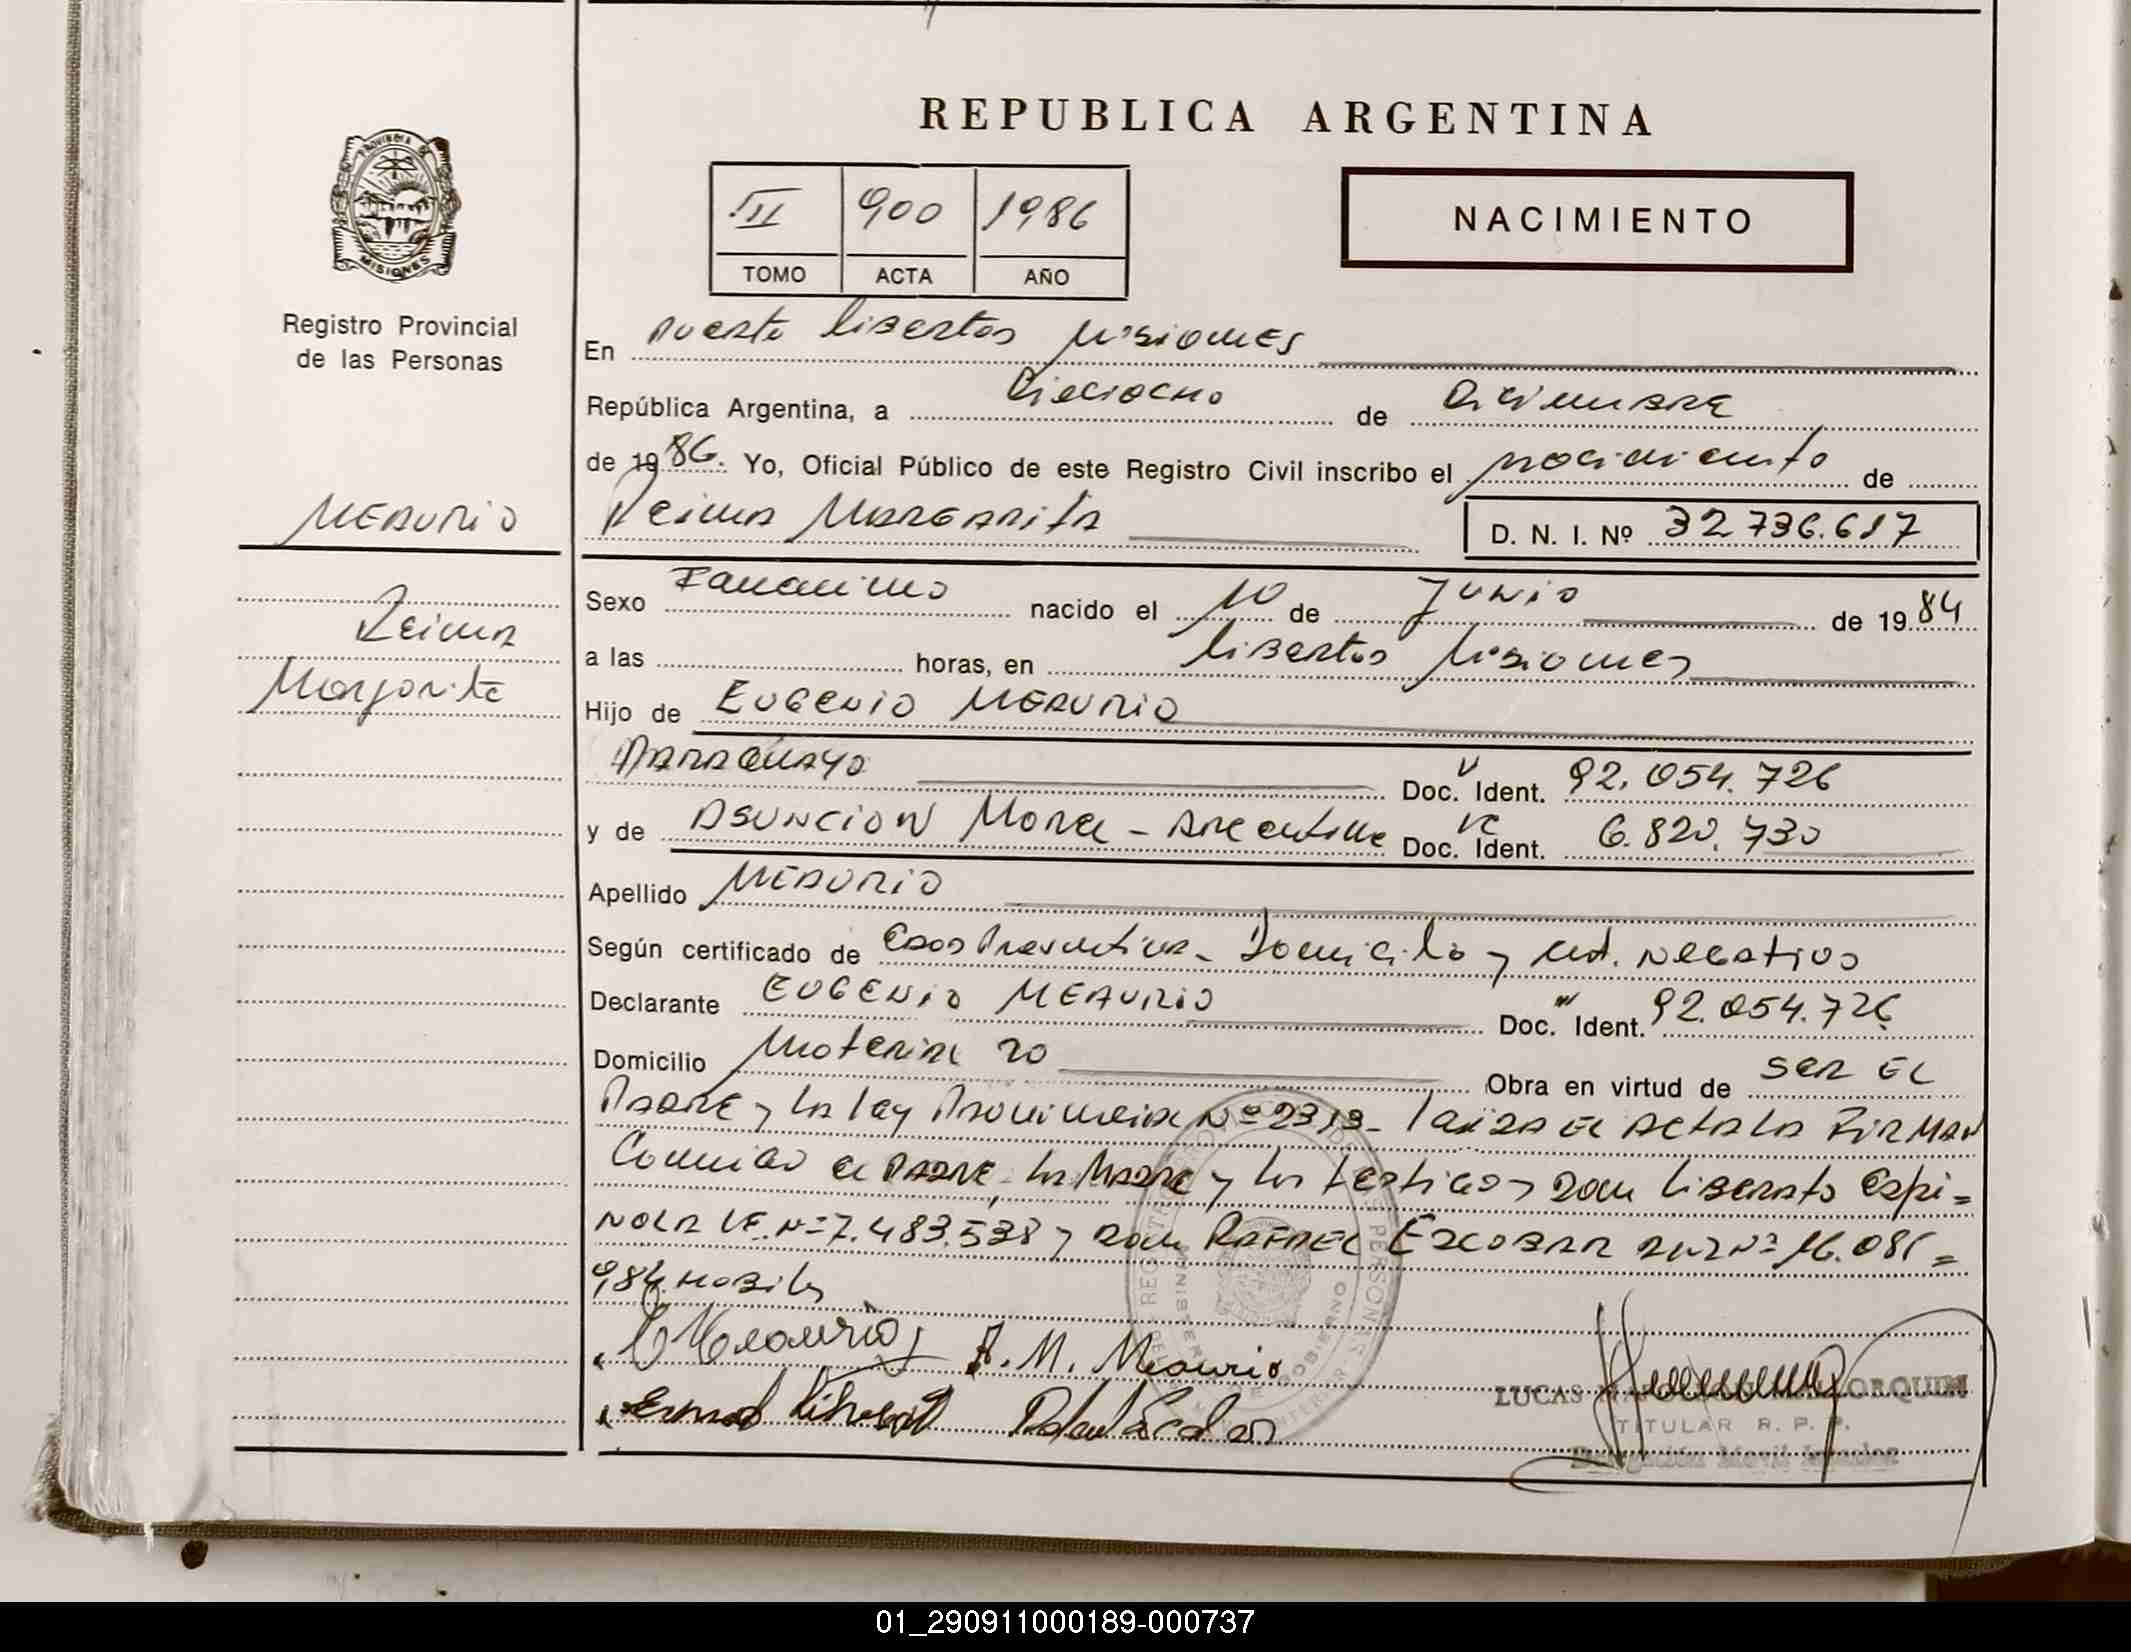 REPUBLICA ARGENTINA
PROVINCIA DE
MISIONES
III 900 1986
TOMO ACTA AÑO
NACIMIENTO
Registro Provincial
de las Personas
En Puerto Libertad Misiones
República Argentina, a Dieciocho de Diciembre
de 1986. Yo, Oficial Público de este Registro Civil inscribo el nacimiento de
MEAURIO
Reina MARGARITA D. N. I. Nº 32.736.617
Reina
Margarita
Sexo Femenino nacido el 10 de Junio de 1984
a las horas, en Libertad Misiones
Hijo de EUGENIO MEAURIO
PARAGUAYO Doc. Ident. 92.054.726
y de ASUNCION Morel - Argentina Doc. Ident. 6.820.730
Apellido MEAURIO
Según certificado de Edad Presuntiva - Domicilio y Cert. Negativo
Declarante EUGENIO MEAURIO Doc. Ident. 92.054.726
Domicilio Obra en virtud de SER EL
PADRE y la ley Provincial Nº 2313 - EL ACTA LA FIRMAN
Conmigo el PADRE, la MADRE y los testigos Don Liberato Espi=
NOLA LE. Nº 7.483.538 y Don RAFAEL ESCOBAR DNI Nº 16.081=
984
Meaurio A. M. Meaurio
LUCAS OEQUIM
TITULAR R. P. P.
Delegación Movil
01_290911000189-000737